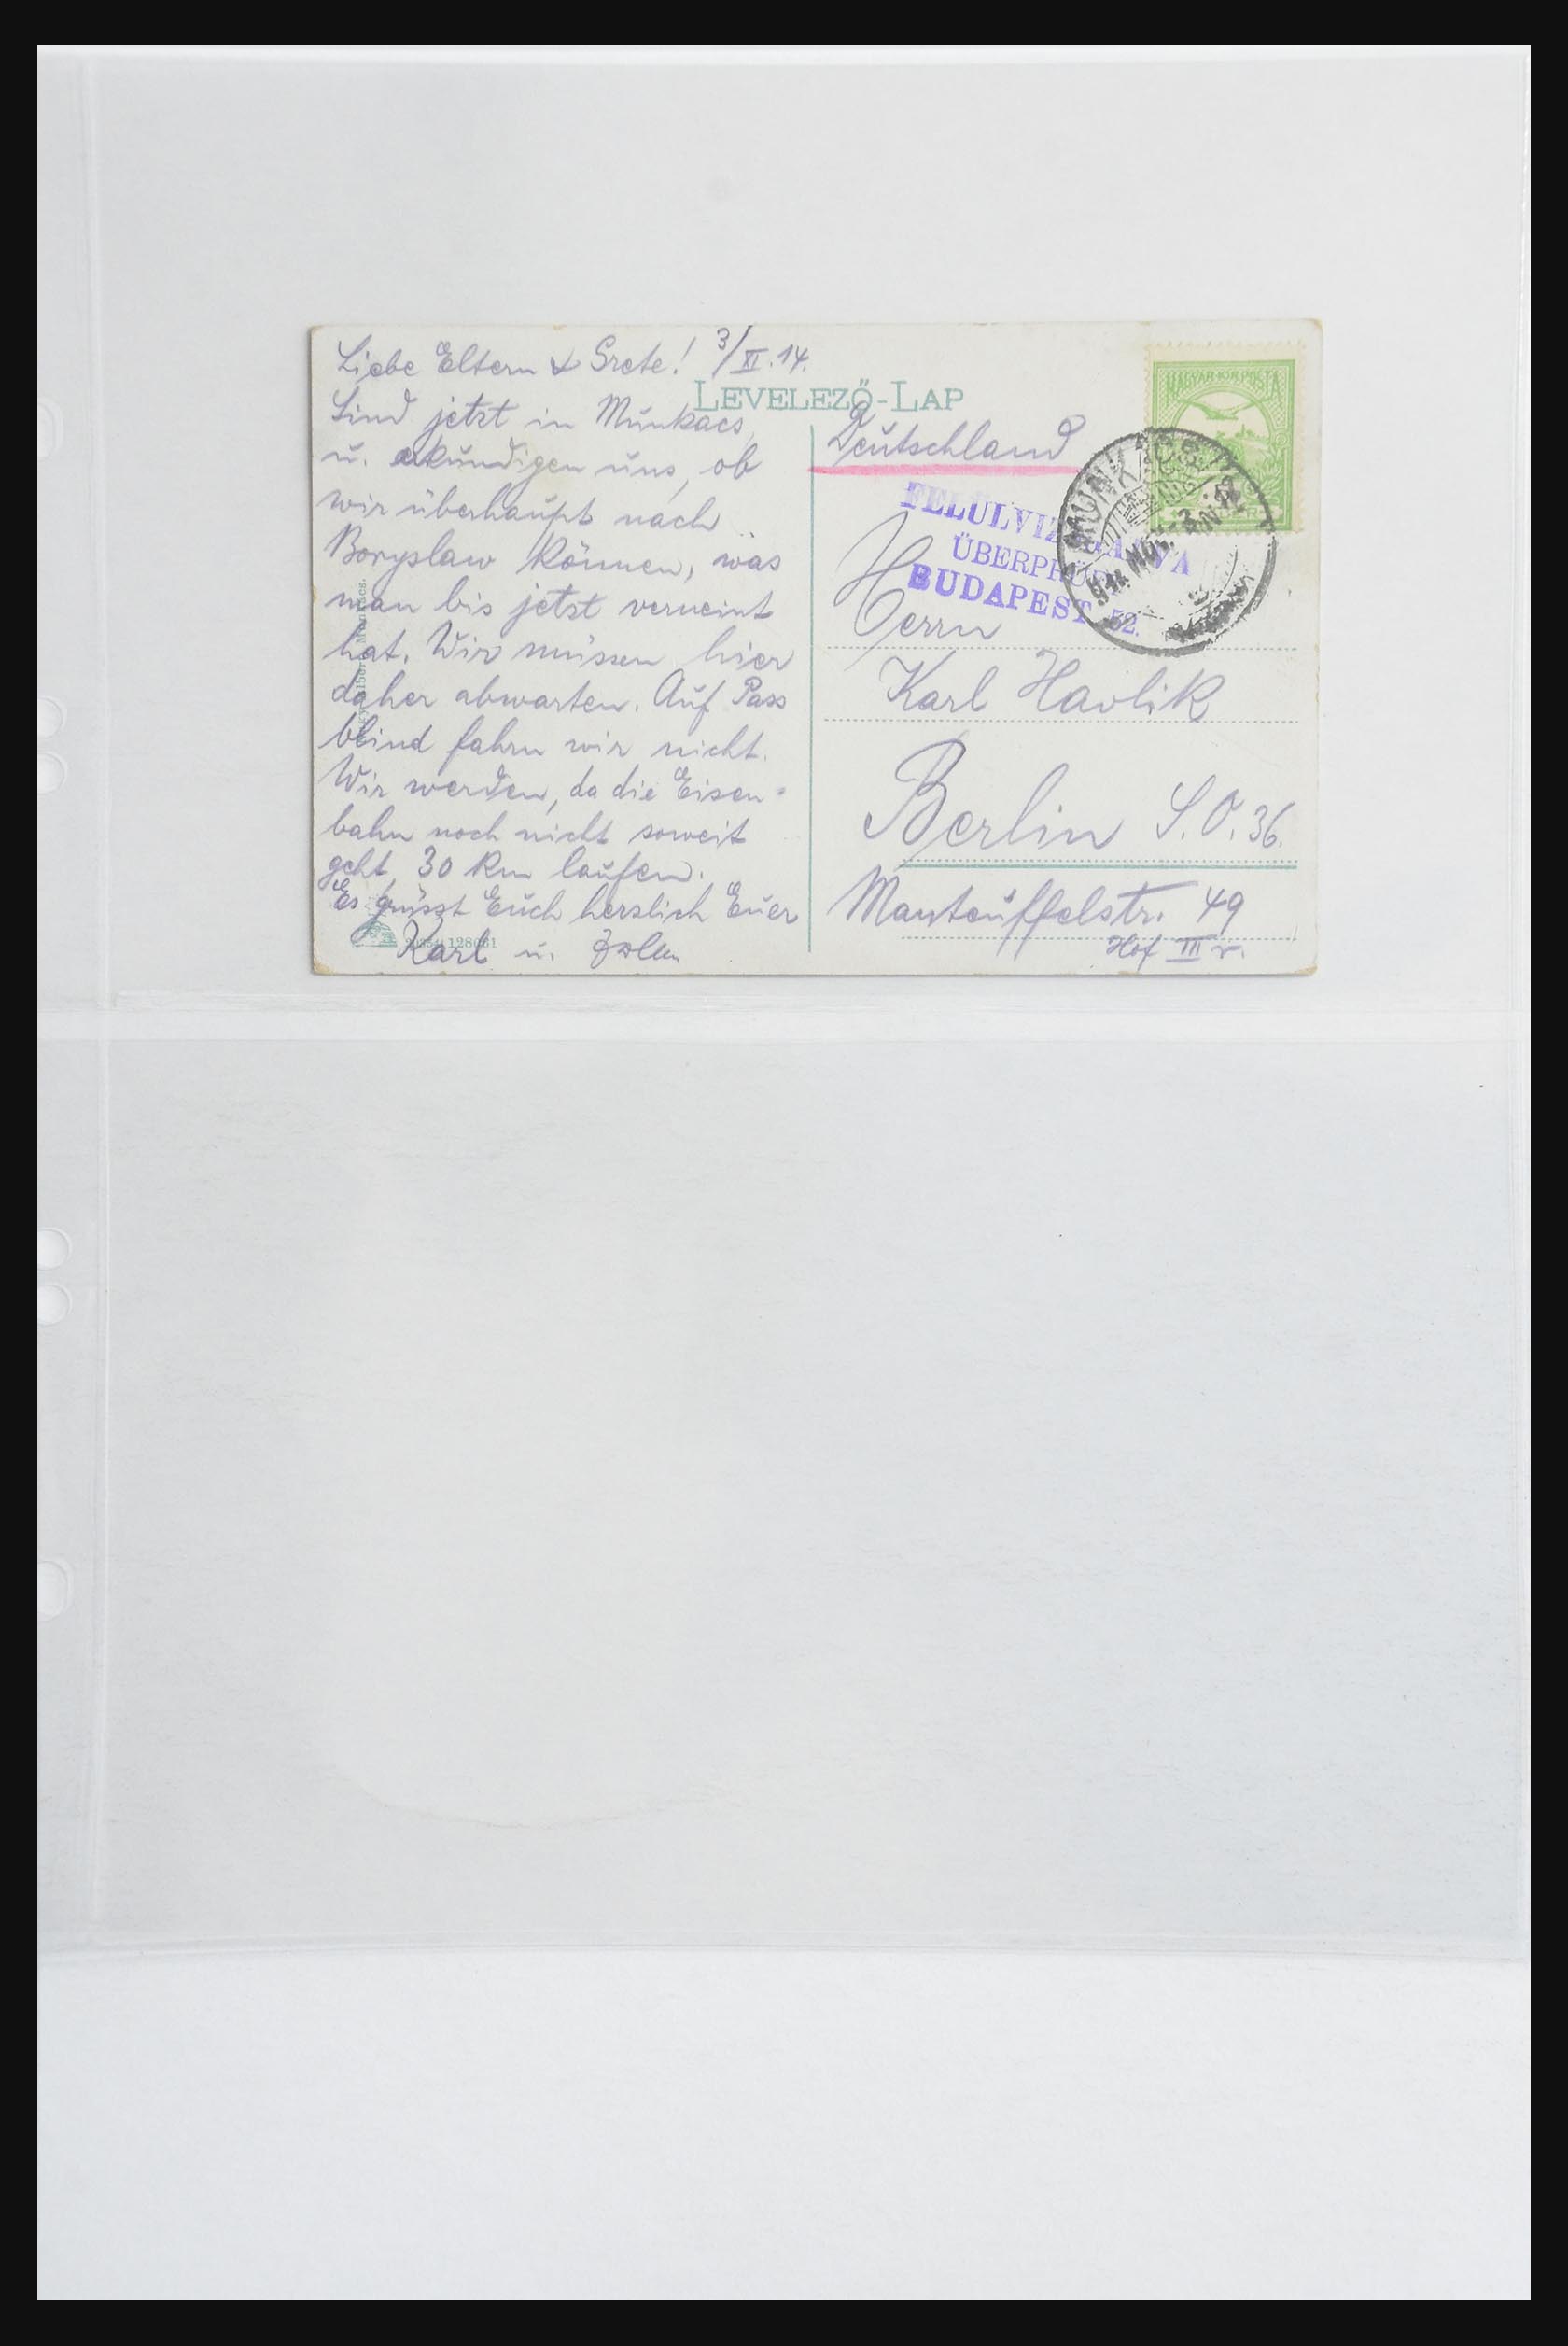 Liebe Eltern & Grete! 3/XI.14.
Sind jetzt in Munkacs,
u. erkundigen uns, ob
wir überhaupt nach
Boryslaw können, was
man bis jetzt verneint
hat. Wir müssen hier
daher abwarten. Auf Pass
blind fahrn wir nicht.
Wir werden, da die Eisen=
bahn noch nicht soweit
geht, 30 km laufen.
Es grüsst Euch herzlich Euer
Karl u.
128031
LEVELEZŐ-LAP
Deutschland
MAGYAR KIR. POSTA
MUNKÁCS
914 NOV. -3
FELÜLVIZSGÁLVA
ÜBERPRÜFT
BUDAPEST 52.
Herrn
Karl Havlik
Berlin S.O. 36.
Manteuffelstr. 49
Hof III r.